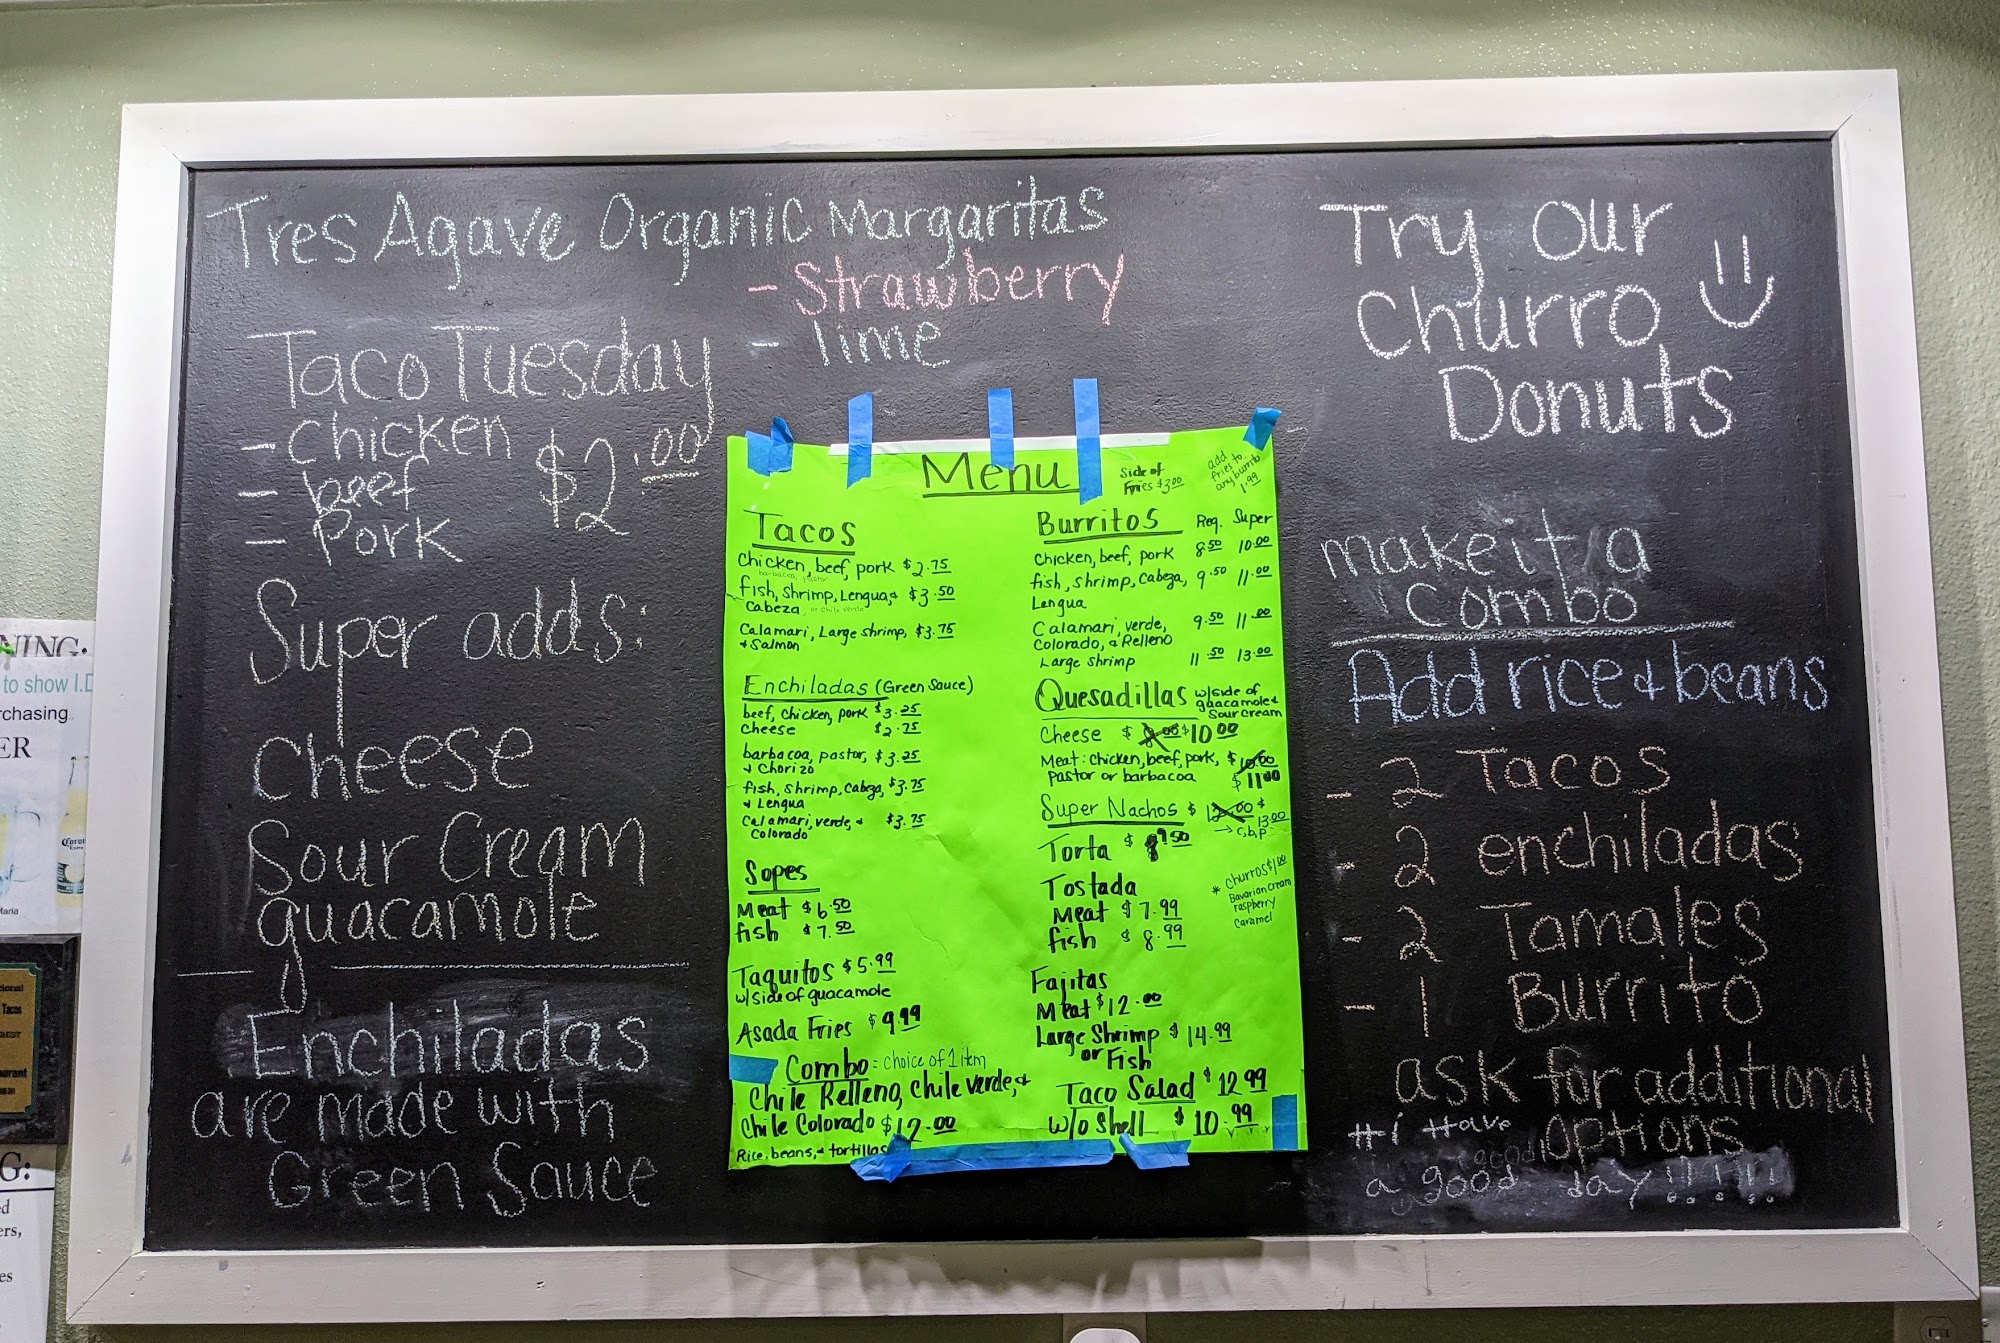 Tres Agave Organic Margaritas
- Strawberry
- lime
Taco Tuesday
- chicken
- beef $2.00
- Pork
Super adds:
Cheese
Sour Cream
guacamole
Enchiladas
are made with
Green Sauce
Menu
Side of
Fries $3.00
add
fries to
any burrito
1.99
Tacos
Chicken, beef, pork $2.75
barbacoa, pastor
fish, shrimp, Lengua, & $3.50
Cabeza or chile verde
Calamari, Large shrimp, $3.75
& Salmon
Enchiladas (Green Sauce)
beef, chicken, pork $3.25
cheese $2.75
barbacoa, pastor, $3.25
& Chorizo
fish, shrimp, Cabeza, $3.75
& Lengua
Calamari, verde, & $3.75
Colorado
Sopes
Meat $6.50
fish $7.50
Taquitos $5.99
w/side of guacamole
Asada Fries $9.99
Combo = choice of 1 item
Chile Relleno, chile verde, &
Chile Colorado $12.00
Rice, beans, & tortillas
Burritos Reg. Super
Chicken, beef, pork 8.50 10.00
fish, shrimp, Cabeza, 9.50 11.00
Lengua
Calamari, verde, 9.50 11.00
Colorado, & Relleno
Large shrimp 11.50 13.00
Quesadillas w/side of
guacamole &
Sour Cream
Cheese $10.00
Meat: chicken, beef, pork, $10.00
pastor or barbacoa $11.00
Super Nachos $ 12.00 $
13.00
→ c,b,p
Torta $9.50
Tostada
Meat $7.99
fish $8.99
* Churros $1.00
Bavarian Cream
raspberry
Caramel
Fajitas
Meat $12.00
Large Shrimp $14.99
or Fish
Taco Salad $12.99
w/o Shell $10.99
Try Our
Churro
Donuts
make it a
Combo
Add rice & beans
- 2 Tacos
- 2 enchiladas
- 2 Tamales
- 1 Burrito
ask for additional
options
Hi Have
a good day !!!!!!
NING:
to show I.D
rchasing
ER
Maria
Tacos
aurant
G:
ers,
es